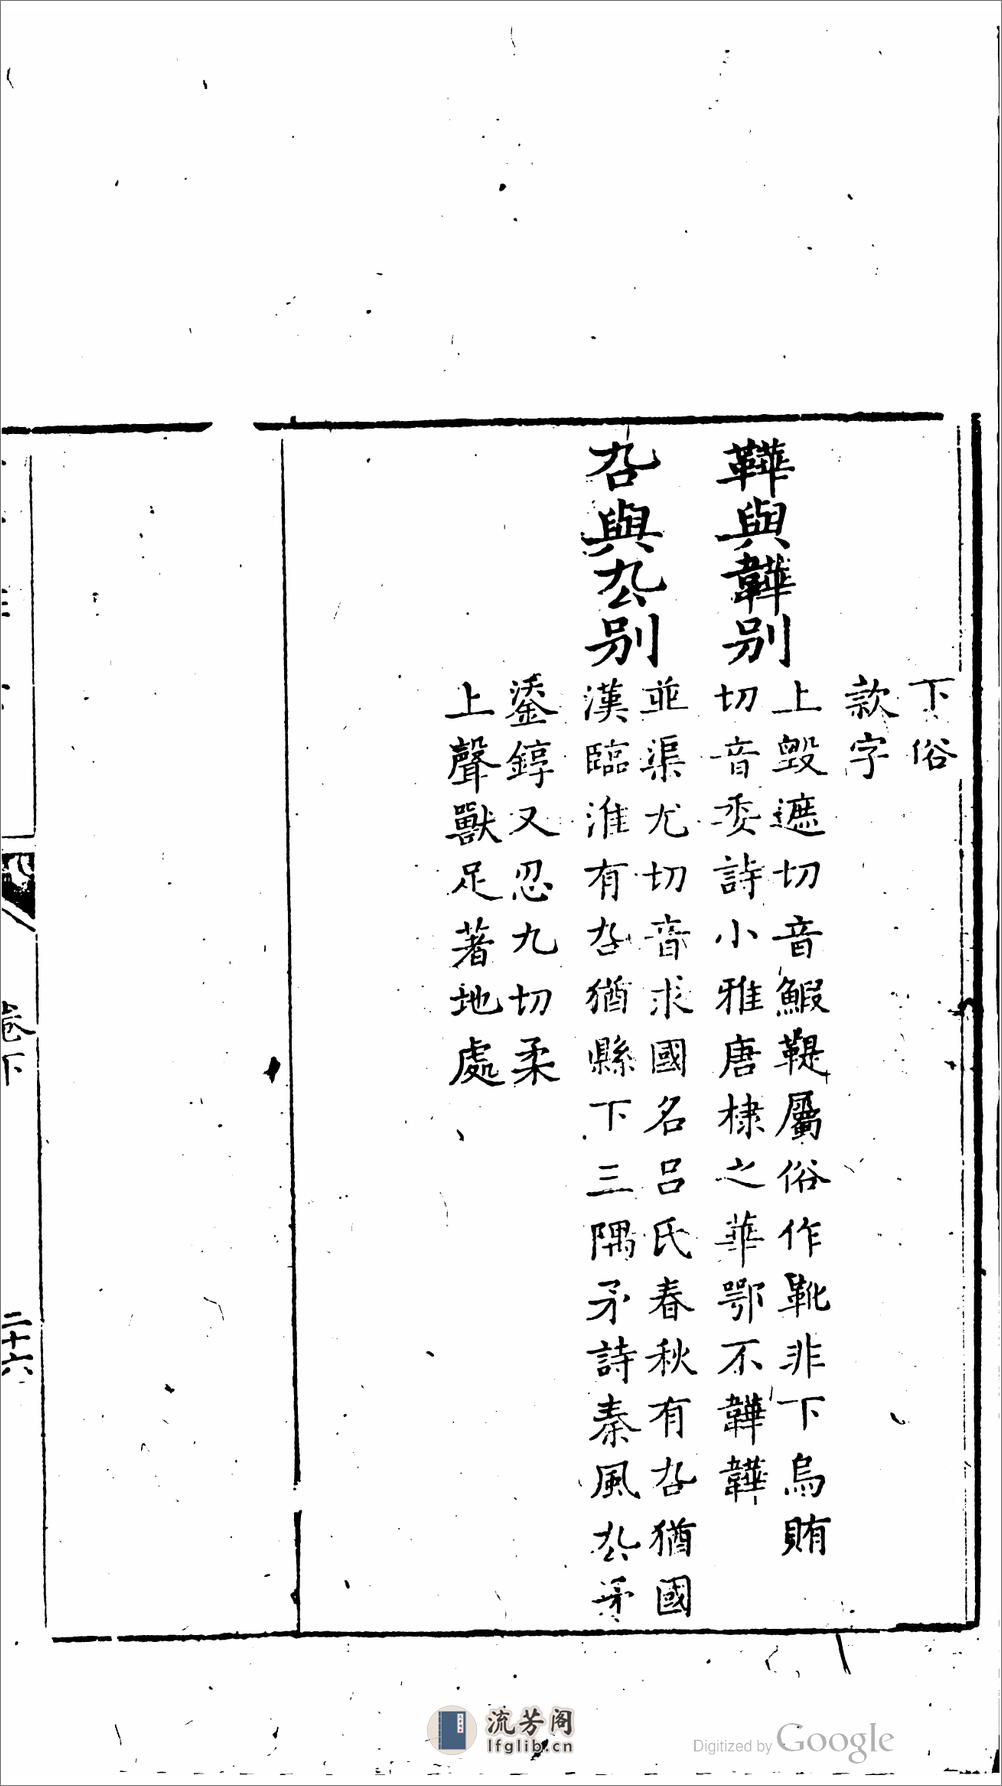 下俗
款字
鞾與韡别
上毀遮切音鰕鞮屬俗作靴非下烏賄
切音委詩小雅唐棣之華鄂不韡韡
厹與厹别
並渠尤切音求國名吕氏春秋有厹猶國
漢臨淮有厹猶縣下三隅矛詩秦風厹矛
鋈錞又忍九切柔
上聲獸足著地處
卷下
二十六
流芳阁
lfglib.cn
Digitized by Google